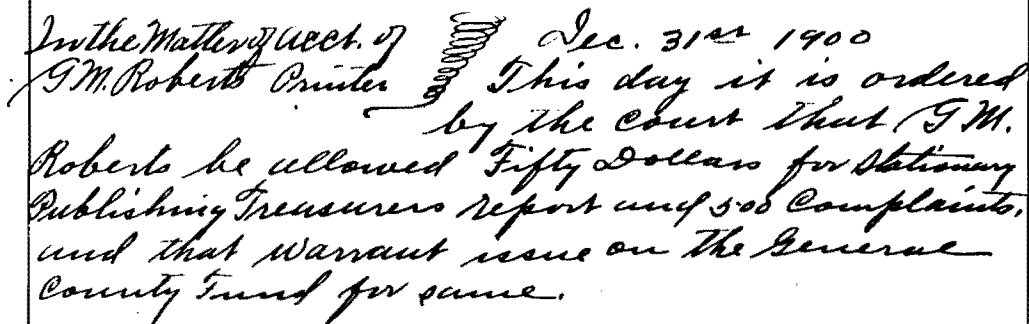 In the Matter of acct. of
G M. Roberts Printer
Dec. 31st 1900
This day it is ordered
by the court that G M.
Roberts be allowed Fifty Dollars for Stationary
Publishing Treasurers report and 500 Complaints.
and that warrant issue on the General
County Fund for same.